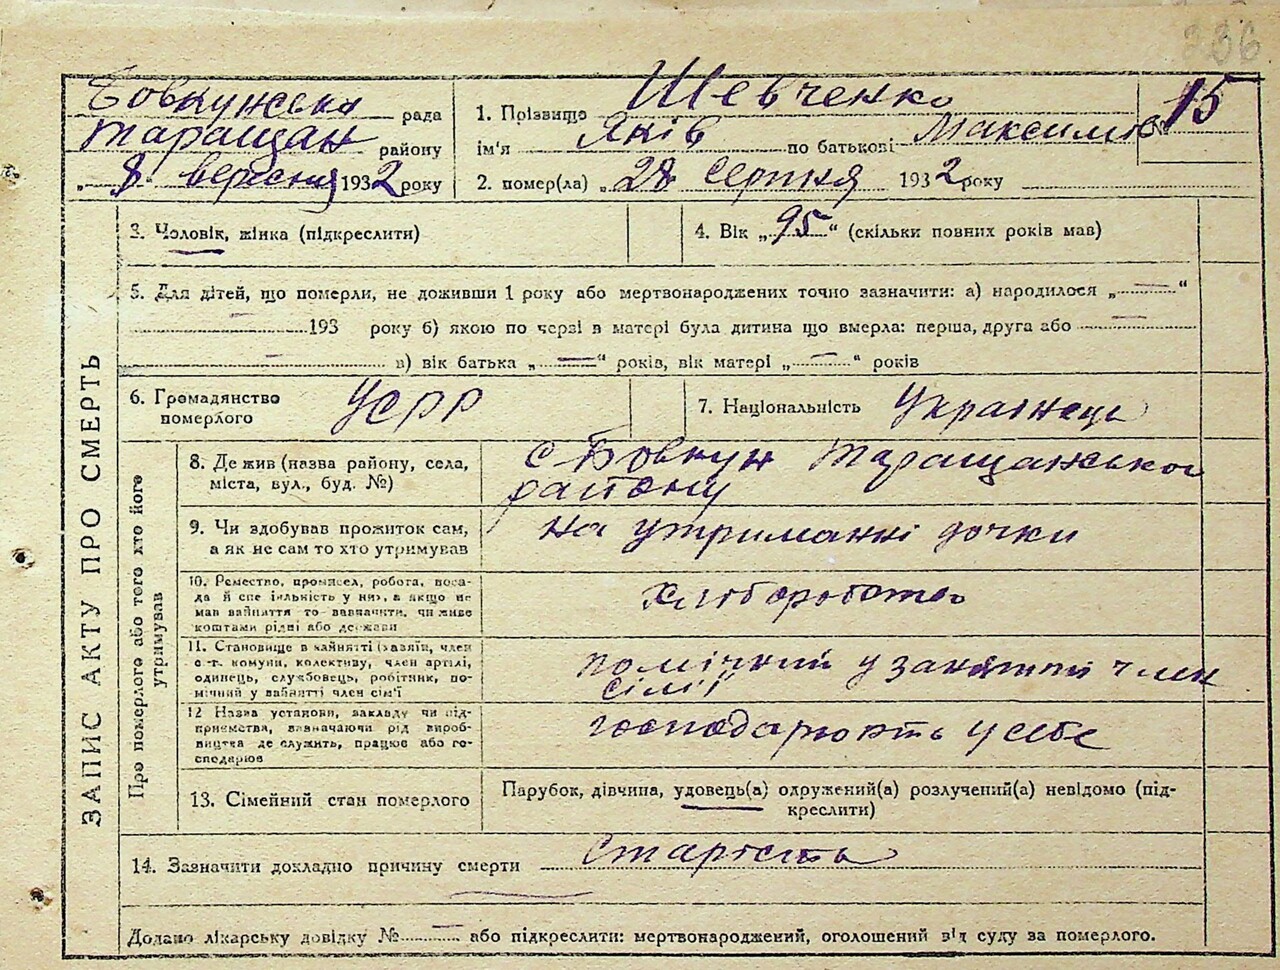 336
Бовкунська рада
Таращан району
„ 8 “ вересня 1932 року
1. Прізвище Шевченко
ім'я Яків по батькові Максимів
№ 15
2. помер(ла) „ 28 серпня 1932 року
3. Чоловік, жінка (підкреслити)
4. Вік „ 95 “ (скільки повних років мав)
5. Для дітей, що померли, не доживши 1 року або мертвонароджених точно зазначити: а) народилося „ — “
— 193 року б) якою по черзі в матері була дитина що вмерла: перша, друга або —
— в) вік батька „ — “ років, вік матері „ — “ років
ЗАПИС АКТУ ПРО СМЕРТЬ
6. Громадянство
померлого
УСРР
7. Національність Українець
Про померлого або того хто його
утримував
8. Де жив (назва району, села,
міста, вул., буд. №)
с Бовкун Таращанського
району
9. Чи здобував прожиток сам,
а як не сам то хто утримував
на утриманні дочки
10. Ремество, промисел, робота, поса-
да й спе іяльність у них, а якщо не
мав зайняття то зазначити, чи живе
коштами рідні або держави
хліборобство
11. Становище в зайнятті (хазяїн, член
с.-г. комуни, колективу, член артілі,
одинець, службовець, робітник, по-
мічний у зайнятті член сім'ї
помічний у занятті член
сімії
12 Назва установи, закладу чи під-
приємства, зазначаючи рід вироб-
ництва де служить, працює або го-
сподарює
господарюють у себе
13. Сімейний стан померлого
Парубок, дівчина, удовець(а) одружений(а) розлучений(а) невідомо (під-
креслити)
14. Зазначити докладно причину смерти старість
Додано лікарську довідку № — або підкреслити: мертвонароджений, оголошений від суду за померлого.